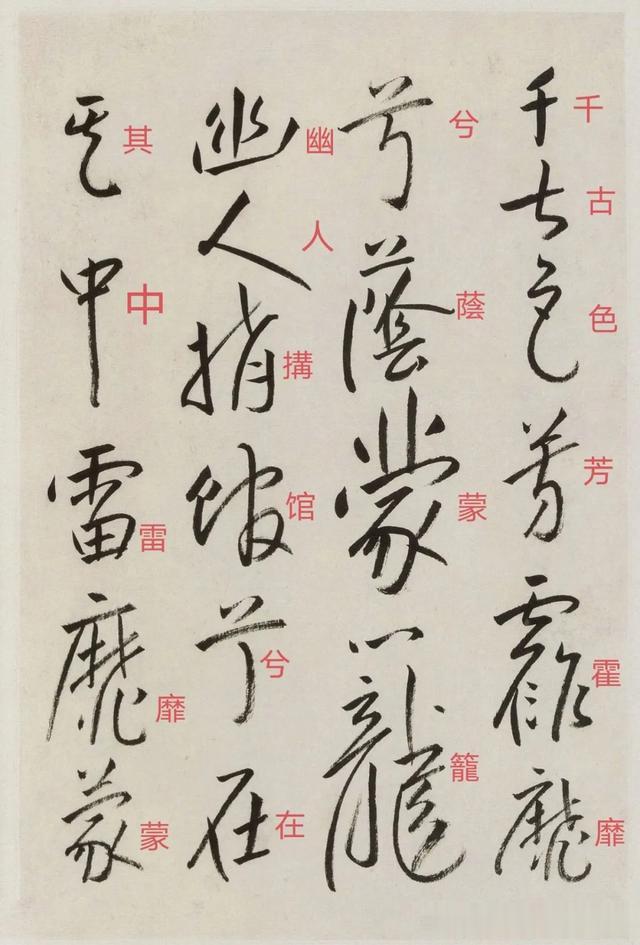 千七色芳靃靡
千古色芳霍靡
兮蔭蒙籠
兮蔭蒙籠
幽人搆館兮在
幽人搆馆兮在
其中雷靡蒙
其中雷靡蒙